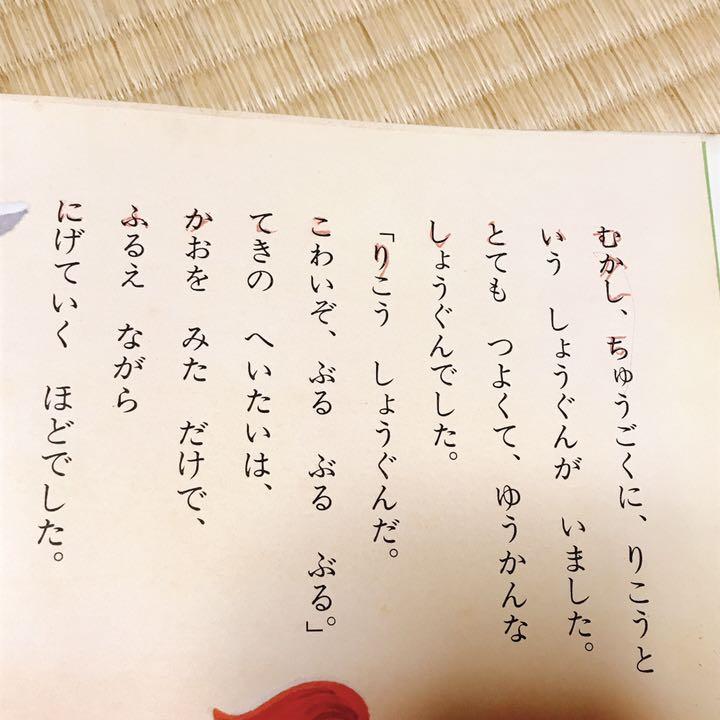 むかし、ちゅうごくに、りこうと
いう　しょうぐんが　いました。
とても　つよくて、ゆうかんな
しょうぐんでした。
「りこう　しょうぐんだ。
こわいぞ、ぶる　ぶる　ぶる。」
てきの　へいたいは、
かおを　みた　だけで、
ふるえ　ながら
にげていく　ほどでした。